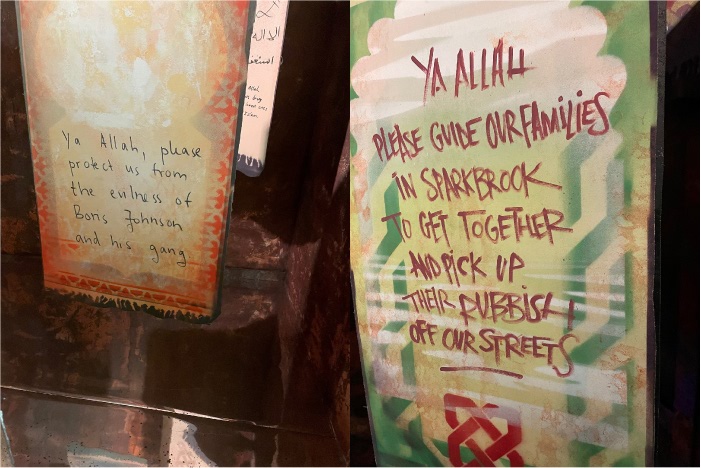 Ya Allah, please
protect us from
the evilness of
Boris Johnson
and his gang
YA ALLAH
PLEASE GUIDE OUR FAMILIES
IN SPARKBROOK
TO GET TOGETHER
AND PICK UP
THEIR RUBBISH
OFF OUR STREETS